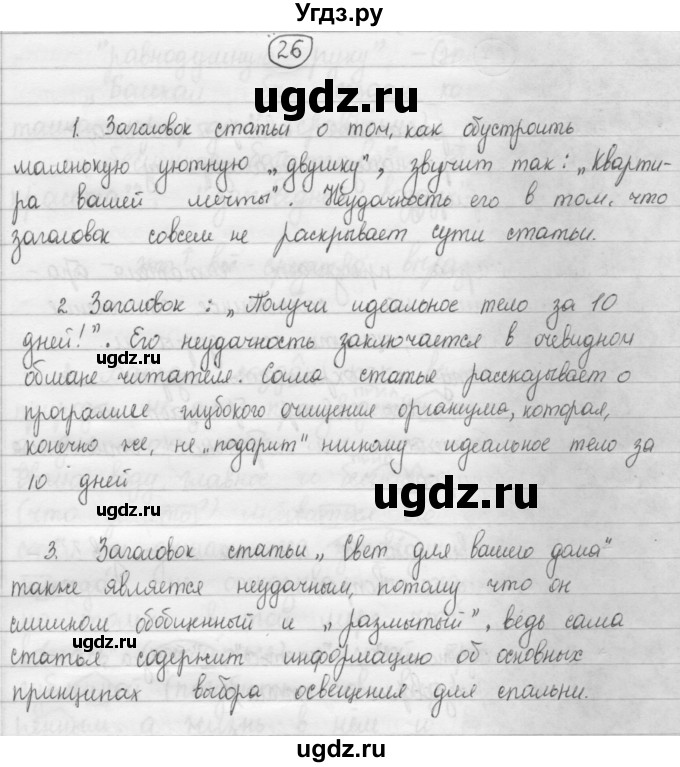 Угдз.ру
26
ugdz.ru
1. Заголовок статьи о том, как обустроить
маленькую уютную „двушку", звучит так: „Кварти-
ра вашей мечты". Неудачность его в том, что
заголовок совсем не раскрывает сути статьи.
2. Заголовок: „Получи идеальное тело за 10
дней!". Его неудачность заключается в очевидном
ugdz.ru
обмане читателя. Сама статья рассказывает о
программе глубокого очищения организма, которая,
конечно же, не „подарит" никому идеальное тело за
10 дней
ugdz.ru
ugdz.ru
3. Заголовок статьи „Свет для вашего дома"
также является неудачным, потому что он
слишком обобщенный и „размытый", ведь сама
ugdz.ru
статья содержит информацию об основных
принципах выбора освещения для спальни.
ugdz.ru